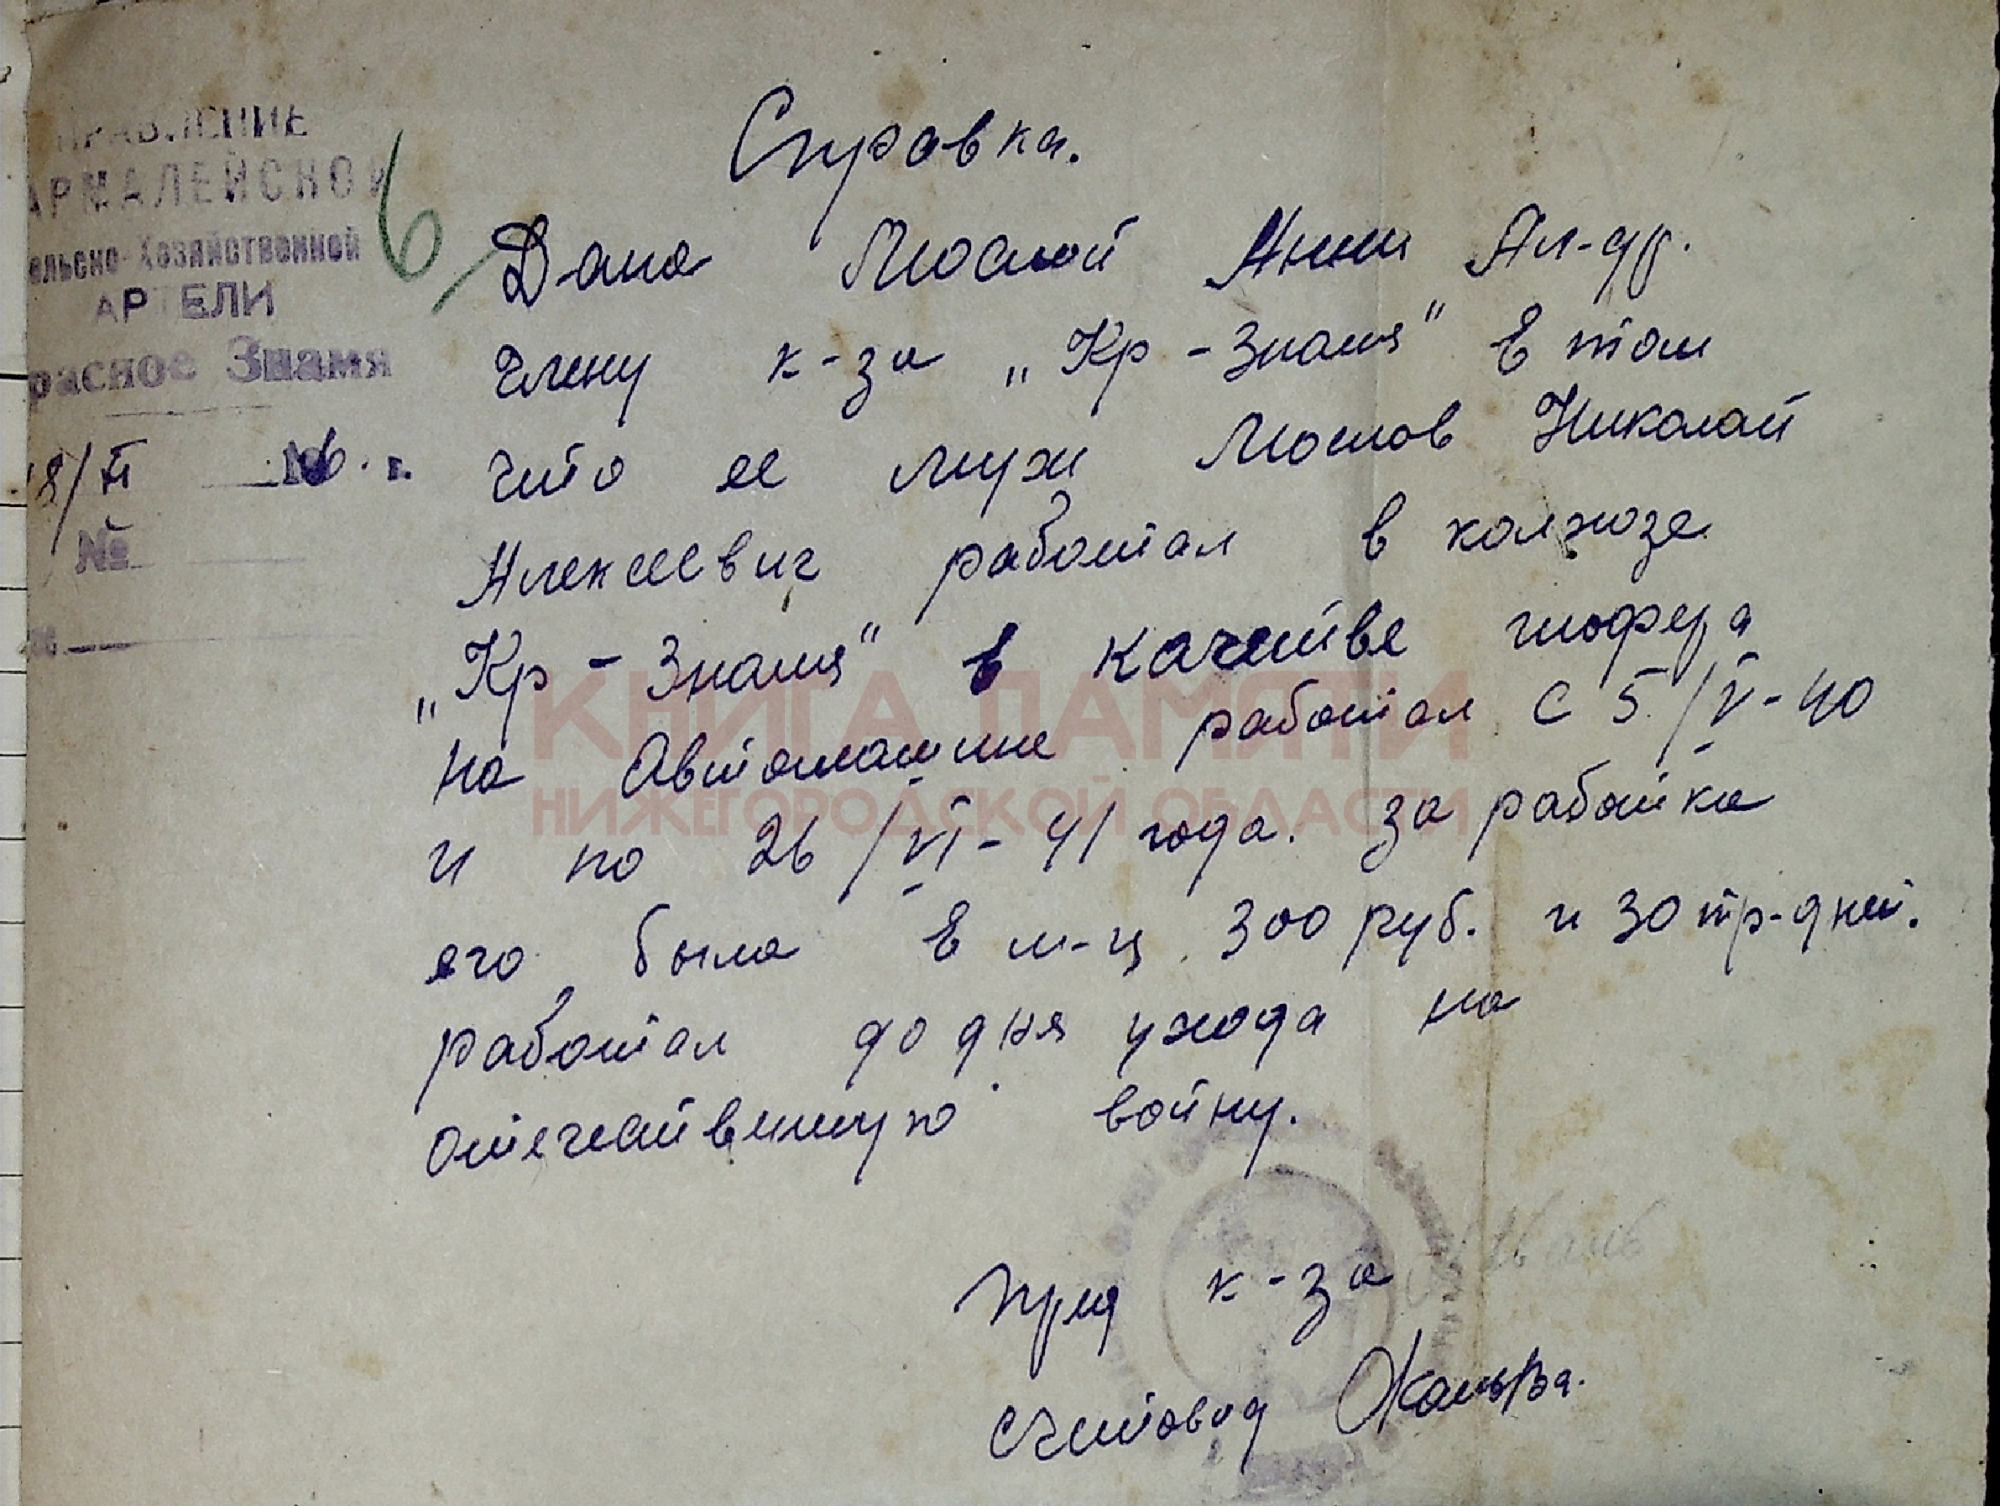 ПРАВЛЕНИЕ
АРМАЛЕЙСКОЙ
ельско-Хозяйственной
АРТЕЛИ
расное Знамя
г.
№
6
Справка.
Дана Масловой Анни Ал-др.
Члену к-за „Кр-Знамя" в том
что ее муж Маслов Николай
Алексеевич работал в колхозе
„Кр-Знамя" в качестве шофера
на Автомашине работал с 5/V-40
и по 26/VI-41 года. заработка
его была в м-ц 300 руб. и 30 тр-дней.
работал до дня ухода на
отечественную войну.
пред к-за
счетовод
КНИГА ПАМЯТИ
НИЖЕГОРОДСКОЙ ОБЛАСТИ